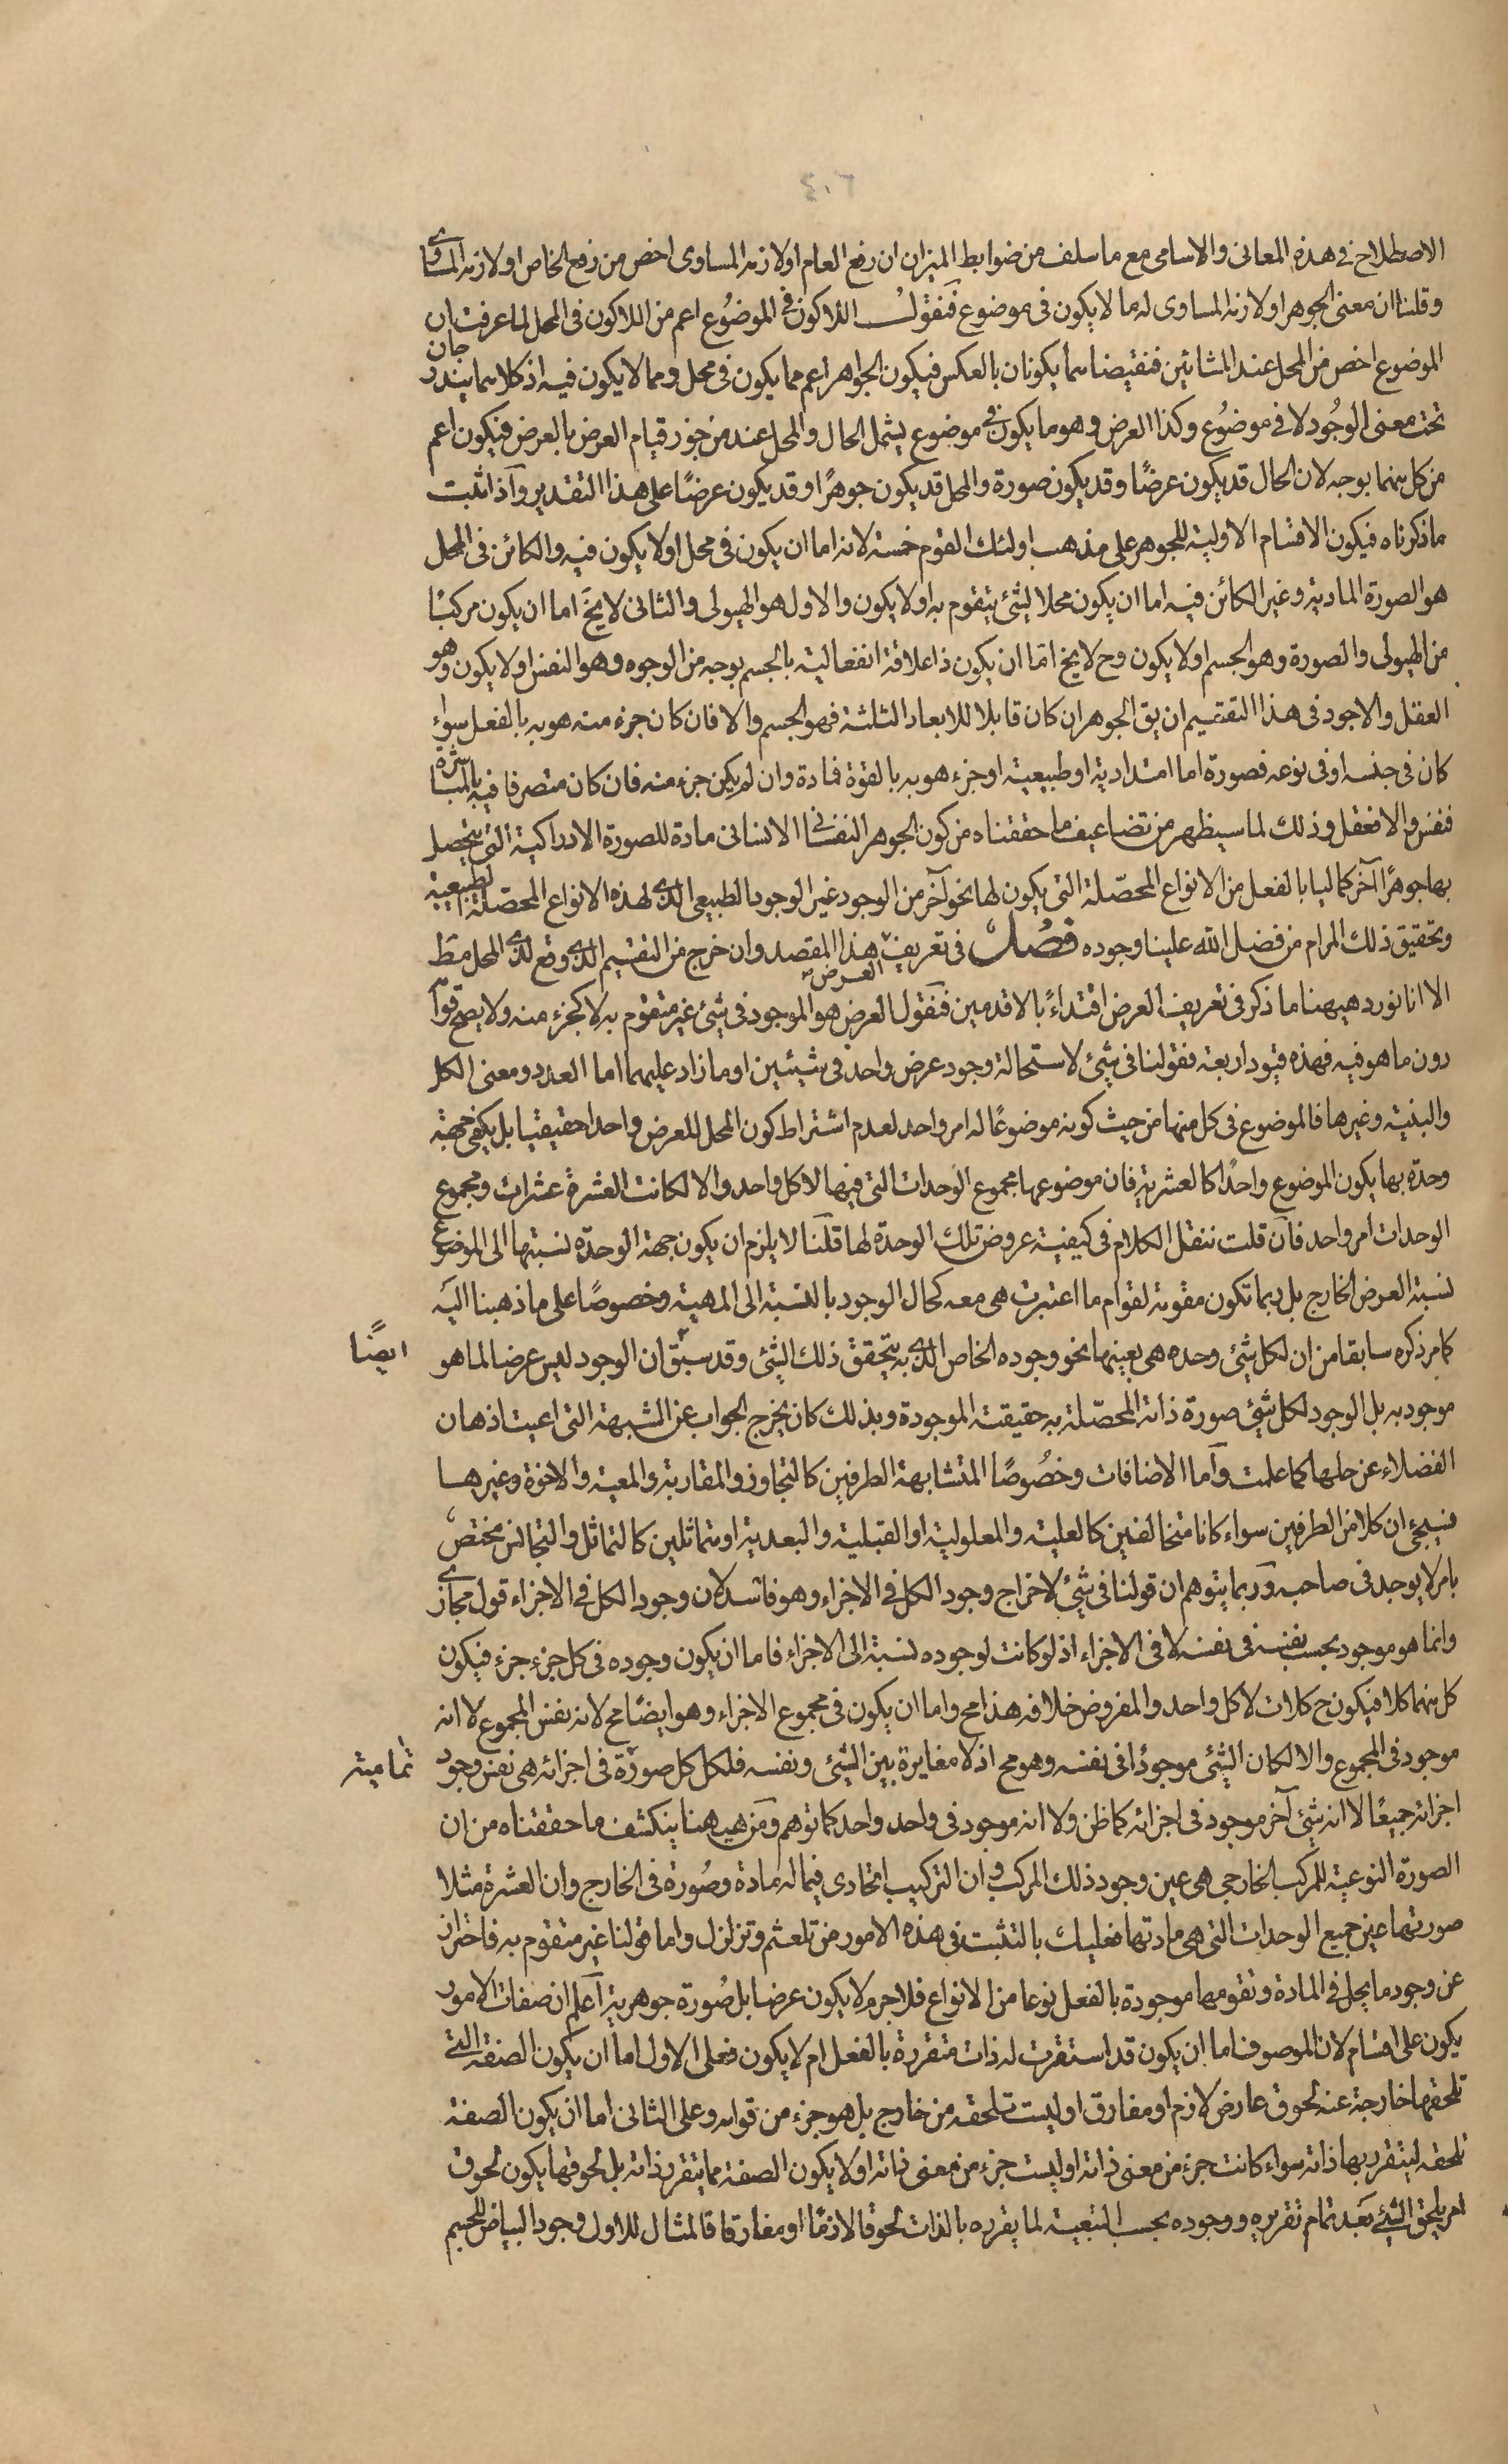 ٤٠٦
الاصطلاح فى هذه المعانى والاسامى مع ما سلف من ضوابط الميزان ان رفع العام او لازمه المساوى اخص من رفع الخاص او لازمه المساوى
وقلنا ان معنى الجوهر او لازمه المساوى له ما لا يكون فى موضوع فنقول اللاكون فى الموضوع اعم من اللاكون فى المحل لما عرفت ان
الموضوع اخص من المحل عند المشائين فنقيضاهما يكونان بالعكس فيكون الجواهر اعم مما يكون فى محل ومما لا يكون فيه اذ كلاهما يندرجان
تحت معنى الوجود لا فى موضوع وكذا العرض وهو ما يكون فى موضوع يشمل الحال والمحل عند من جوز قيام العرض بالعرض فيكون اعم
من كل منهما بوجه لان الحال قد يكون عرضًا وقد يكون صورة والمحل قد يكون جوهرًا وقد يكون عرضًا على هذا التقدير وآذا ثبت
ما ذكرناه فيكون الاقسام الاولية للجوهر على مذهب اولئك القوم خمسة لانه اما ان يكون فى محل او لا يكون فيه والكائن فى المحل
هو الصورة المادية وغير الكائن فيه اما ان يكون محلا لشئ يتقوم به او لا يكون والاول هو الهيولى والثانى لا يخ اما ان يكون مركبًا
من الهيولى والصورة وهو الجسم او لا يكون وح لا يخ امّا ان يكون ذا علاقة انفعالية بالجسم بوجه من الوجوه وهو النفس او لا يكون وهو
العقل والاجود فى هذا التقسيم ان يق الجوهر ان كان قابلا للابعاد الثلثة فهو الجسم والا فان كان جزء منه هو به بالفعل سواء
كان فى جنسه او فى نوعه فصورة اما امتدادية او طبيعية او جزء هو به بالقوة فمادة وان لم يكن جزء منه فان كان متصرفا فيه بالمباشرة
فنفس والا فعقل وذلك لما سيظهر من تضاعيف ما حققناه من كون الجوهر النفسانى الانسانى مادة للصورة الادراكية التى يتحصل
بها جوهرًا آخر كماليا بالفعل من الانواع المحصّلة التى يكون لها نحو آخر من الوجود غير الوجود الطبيعى الذى لهذه الانواع المحصّلة الطبيعية
وتحقيق ذلك المرام من فضل الله علينا وجوده فصل فى تعريف العرض هذا المقصد وان خرج من التقسيم الذى وقع لذى المحل مط
الا انا نورد هيهنا ما ذكر فى تعريف العرض اقتداءً بالاقدمين فنقول العرض هو الموجود فى شئ غير متقوم به لا كجزء منه ولا يصح قوامه
دون ما هو فيه فهذه قيود اربعة فقولنا فى شئ لاستحالة وجود عرض واحد فى شيئين او ما زاد عليهما اما العدد ومعنى الكل
والبنية وغيرها فالموضوع فى كل منها من حيث كونه موضوعًا له امر واحد لعدم اشتراط كون المحل للعرض واحدا حقيقيا بل يكفى جهة
وحدة بها يكون الموضوع واحدًا كالعشرية فان موضوعها مجموع الوحدات التى فيها لا كل واحد والا لكانت العشرة عشرات ومجموع
الوحدات امر واحد فآن قلت ننقل الكلام فى كيفية عروض تلك الوحدة لها قلنا لا يلزم ان يكون جهة الوحدة نسبتها الى الموضوع
نسبة العرض الخارج بل ربما تكون مقومة لقوام ما اعتبرت هى معه كحال الوجود بالنسبة الى المهية وخصوصًا على ما ذهبنا اليه
كما مر ذكره سابقا من ان لكل شئ وحده هى بعينها نحو وجوده الخاص الذى به يتحقق ذلك الشئ وقد سبق ان الوجود ليس عرضا لما هو
ايضًا
موجود به بل الوجود لكل شئ صورة ذاته المحصّلة به حقيقته الموجودة وبذلك كان يخرج الجواب عن الشبهة التى اعيت اذهان
الفضلاء عن حلها كما علمت وآما الاضافات وخصوصًا المتشابهة الطرفين كالتجاوز والمقاربة والمعية والاخوة وغيرها
فسيجئ ان كلا من الطرفين سواء كانا متخالفين كالعلية والمعلولية او القبلية والبعدية او متماثلين كالتماثل والتجالس مختص
بامر لا يوجد فى صاحبه وربما يتوهم ان قولنا فى شئ لاخراج وجود الكل فى الاجزاء وهو فاسد لان وجود الكل فى الاجزاء قول مجازى
وانما هو موجود بحسب نفسه فى نفسه لا فى الاجزاء اذ لو كانت لوجوده نسبة الى الاجزاء فاما ان يكون وجوده فى كل جزء جزء فيكون
كل منهما كلا فيكون ح كلات لا كل واحد والمفروض خلافه هذا مح واما ان يكون فى مجموع الاجزاء وهو ايضًا مح لانه نفس المجموع لا انه
موجود فى المجموع والا لكان الشئ موجودًا فى نفسه وهو مح اذ لا مغايرة بين الشئ ونفسه فلكل كل صورة فى اجزائه هى نفس وجود
تمامية
اجزائه جميعًا لا انه شئ آخر موجود فى اجزائه كما ظن ولا انه موجود فى واحد واحد كما توهم ومن هيهنا ينكشف ما حققناه من ان
الصورة النوعية للمركب الخارجى هى عين وجود ذلك المركب وان التركيب اتحادى فيما له مادة وصورة فى الخارج وان العشرة مثلا
صورتها عين جميع الوحدات التى هى مادتها فعليك بالتثبت فى هذه الامور من تلعثم وتزلزل واما قولنا غير متقوم به فاحتراز
عن وجود ما يحل فى المادة وتقومها موجودة بالفعل نوعا من الانواع فلاجرم لا يكون عرضا بل صورة جوهرية آعلم ان صفات الامور
يكون على اقسام لان الموصوف اما ان يكون قد استقرت له ذات متقررة بالفعل ام لا يكون فعلى الاول اما ان يكون الصفة التى
تلحقها خارجة عنه لحوق عارض لازم او مفارق او ليست تلحقه من خارج بل هو جزء من قوامه وعلى الثانى اما ان يكون الصفة
تلحقه ليتقرر بها ذاته سواء كانت جزء من معنى ذاته او ليست جزء من معنى ذاته او لا يكون الصفة مما يتقرر ذاته بل لحوقها يكون لحوق
امر يلحق الشئ بعد تمام تقرره ووجوده بحسب التبعية لما يقرره بالذات لحوقا لازمًا او مفارقا فالمثال للاول وجود البياض للجسم